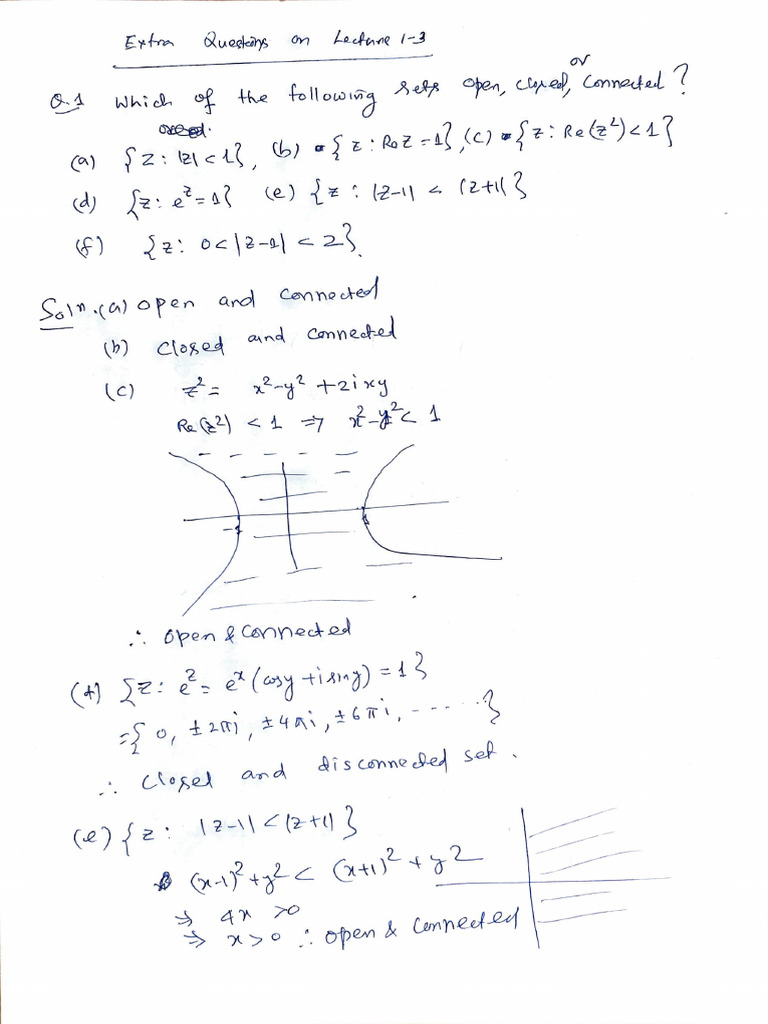 Extra Questions on Lecture 1-3
Q.1 Which of the following sets open, closed, or connected?
(a) {z: |z|<1}, (b) {z: Re z = 1}, (c) {z: Re(z²)<1}
(d) {z: e^z = 1} (e) {z: |z-1| < |z+1|}
(f) {z: 0<|z-1|<2}.
Solⁿ. (a) open and connected
(b) closed and connected
(c) z² = x²-y² + 2ixy
Re(z²) < 1 ⇒ x²-y² < 1
-1 1
∴ open & connected
(d) {z: e^z = e^x (cosy + i siny) = 1}
= {0, ±2πi, ±4πi, ±6πi, ------}
∴ closed and disconnected set.
(e) {z: |z-1| < |z+1|}
(x-1)² + y² < (x+1)² + y²
⇒ 4x > 0
⇒ x > 0 ∴ open & connected